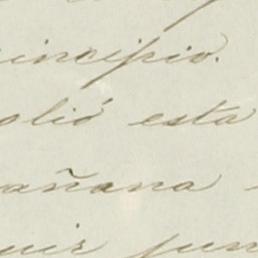 incipio.
olió esta
añana
uir jun